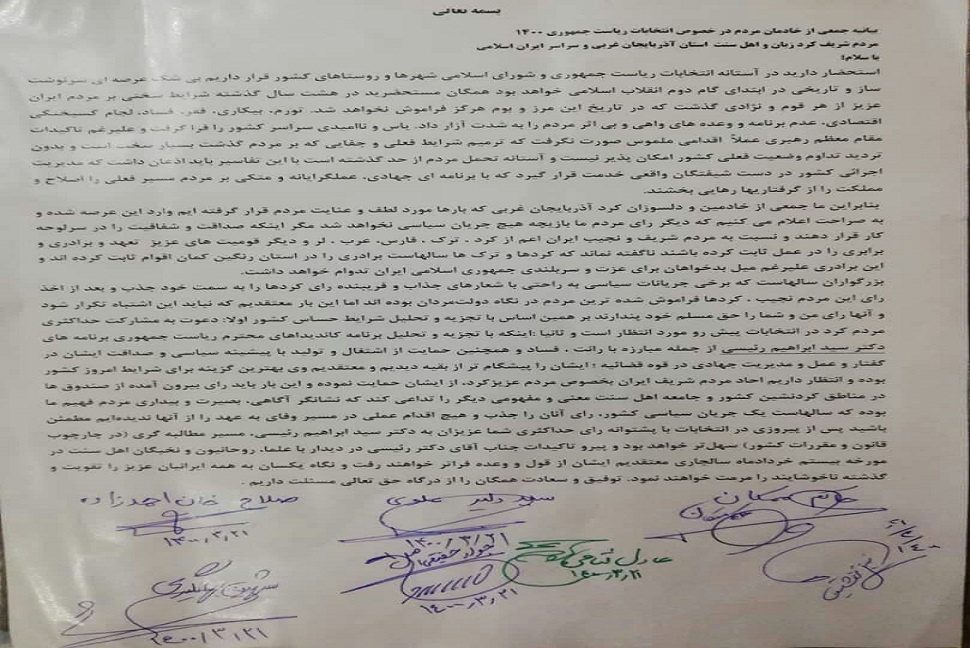 بسمه تعالی
بیانیه جمعی از خادمان مردم در خصوص انتخابات ریاست جمهوری ۱۴۰۰
مردم شریف کرد زبان و اهل سنت استان آذربایجان غربی و سراسر ایران اسلامی
با سلام؛
استحضار دارید در آستانه انتخابات ریاست جمهوری و شورای اسلامی شهرها و روستاهای کشور قرار داریم بی شک عرصه ای سرنوشت
ساز و تاریخی در ابتدای گام دوم انقلاب اسلامی خواهد بود همگان مستحضرید در هشت سال گذشته شرایط سختی بر مردم ایران
عزیز از هر قوم و نژادی گذشت که در تاریخ این مرز و بوم هرگز فراموش نخواهد شد. تورم، بیکاری، فقر، فساد، لجام گسیختگی
اقتصادی، عدم برنامه و وعده های واهی و بی اثر مردم را به شدت آزار داد. یاس و ناامیدی سراسر کشور را فرا گرفت و علیرغم تاکیدات
مقام معظم رهبری عملاً اقدامی ملموس صورت نگرفت که ترمیم شرایط فعلی و جفایی که بر مردم گذشت بسیار سخت است و بدون
تردید تداوم وضعیت فعلی کشور امکان پذیر نیست و آستانه تحمل مردم از حد گذشته است با این تفاسیر باید اذعان داشت که مدیریت
اجرائی کشور در دست شیفتگان واقعی خدمت قرار گیرد که با برنامه ای جهادی، عملگرایانه و متکی بر مردم مسیر فعلی را اصلاح و
مملکت را از گرفتاریها رهایی بخشند.
بنابراین ما جمعی از خادمین و دلسوزان کرد آذربایجان غربی که بارها مورد لطف و عنایت مردم قرار گرفته ایم وارد این عرصه شده و
به صراحت اعلام می کنیم که دیگر رای مردم ما بازیچه هیچ جریان سیاسی نخواهد شد مگر اینکه صداقت و شفافیت را در سرلوحه
کار قرار دهند و نسبت به مردم شریف و نجیب ایران اعم از کرد ، ترک ، فارس، عرب ، لر و دیگر قومیت های عزیز تعهد و برادری و
برابری را در عمل ثابت کرده باشند ناگفته نماند که کردها و ترک ها سالهاست برادری را در استان رنگین کمان اقوام ثابت کرده اند و
این برادری علیرغم میل بدخواهان برای عزت و سربلندی جمهوری اسلامی ایران تدوام خواهد داشت.
بزرگواران سالهاست که برخی جریانات سیاسی به راحتی با شعارهای جذاب و فریبنده رای کردها را به سمت خود جذب و بعد از اخذ
رای این مردم نجیب ، کردها فراموش شده ترین مردم در نگاه دولت‌مردان بوده اند اما این بار معتقدیم که نباید این اشتباه تکرار شود
و آنها رای من و شما را حق مسلم خود پندارند بر همین اساس با تجزیه و تحلیل شرایط حساس کشور اولا: دعوت به مشارکت حداکثری
مردم کرد در انتخابات پیش رو مورد انتظار است و ثانیا :اینکه با تجزیه و تحلیل برنامه کاندیداهای محترم ریاست جمهوری برنامه های
دکتر سید ابراهیم رئیسی از جمله مبارزه با رانت ، فساد و همچنین حمایت از اشتغال و تولید با پیشینه سیاسی و صداقت ایشان در
گفتار و عمل و مدیریت جهادی در قوه قضائیه ؛ ایشان را پیشگام تر از بقیه دیدیم و معتقدیم وی بهترین گزینه برای شرایط امروز کشور
بوده و انتظار داریم احاد مردم شریف ایران بخصوص مردم عزیزکرد، از ایشان حمایت نموده و این بار باید رای بیرون آمده از صندوق ها
در مناطق کردنشین کشور و جامعه اهل سنت معنی و مفهومی دیگر را تداعی کند که نشانگر آگاهی، بصیرت و بیداری مردم فهیم ما
بوده که سالهاست یک جریان سیاسی کشور، رای آنان را جذب و هیچ اقدام عملی در مسیر وفای به عهد را از آنها ندیده‌ایم مطمئن
باشید پس از پیروزی در انتخابات با پشتوانه رای حداکثری شما عزیزان به دکتر سید ابراهیم رئیسی، مسیر مطالبه گری (در چارچوب
قانون و مقررات کشور) سهل‌تر خواهد بود و پیرو تاکیدات جناب آقای دکتر رئیسی در دیدار با علما، روحانیون و نخبگان اهل سنت در
مورخه بیستم خردادماه سالجاری معتقدیم ایشان از قول و وعده فراتر خواهند رفت و نگاه یکسان به همه ایرانیان عزیز را تقویت و
گذشته ناخوشایند را مرمت خواهند نمود. توفیق و سعادت همگان را از درگاه حق تعالی مسئلت داریم .
سید دلیر علوی
صلاح خان احمدزاده
۱۴۰۰/۳/۲۱
۱۴۰۰/۳/۲۱
عادل
۱۴۰۰/۳/۲۱
۱۴۰۰/۳/۲۱
۱۴۰۰/۳/۲۱